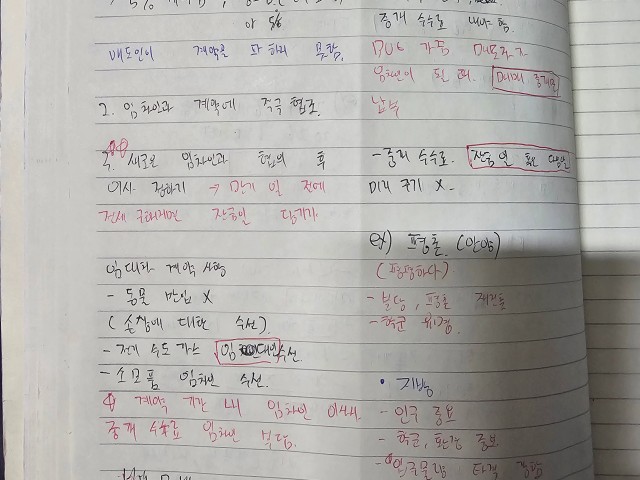 야 5%
매도인이 계약을 파하지 못함.
2. 임차인과 계약에 적극 협조.
새로운 임차인과 협의 후
이사 정하기 → 만기 일 전에
전세 구해지면 잔금일 당기기
임대차 계약 사항
- 동물 반입 X
(손상에 대한 수선).
- 전기 수도 가스 임대인 수선
- 소모품 임차인 수선.
계약 기간 내 임차인 이사시
중개 수수료 임차인 부담.
중개 수수료 내야 함
BUt 가끔 매도자가
임차인이 될 때. 매매 중개료
납부
- 중개 수수료. 잔금일
미리 주기 X.
ex) 평촌. (안양)
(평평하다)
- 분당, 평촌 재건축
- 학군 유명.
• 지방
- 인구 중요
- 학군, 환경 중요
- 입주물량 타격